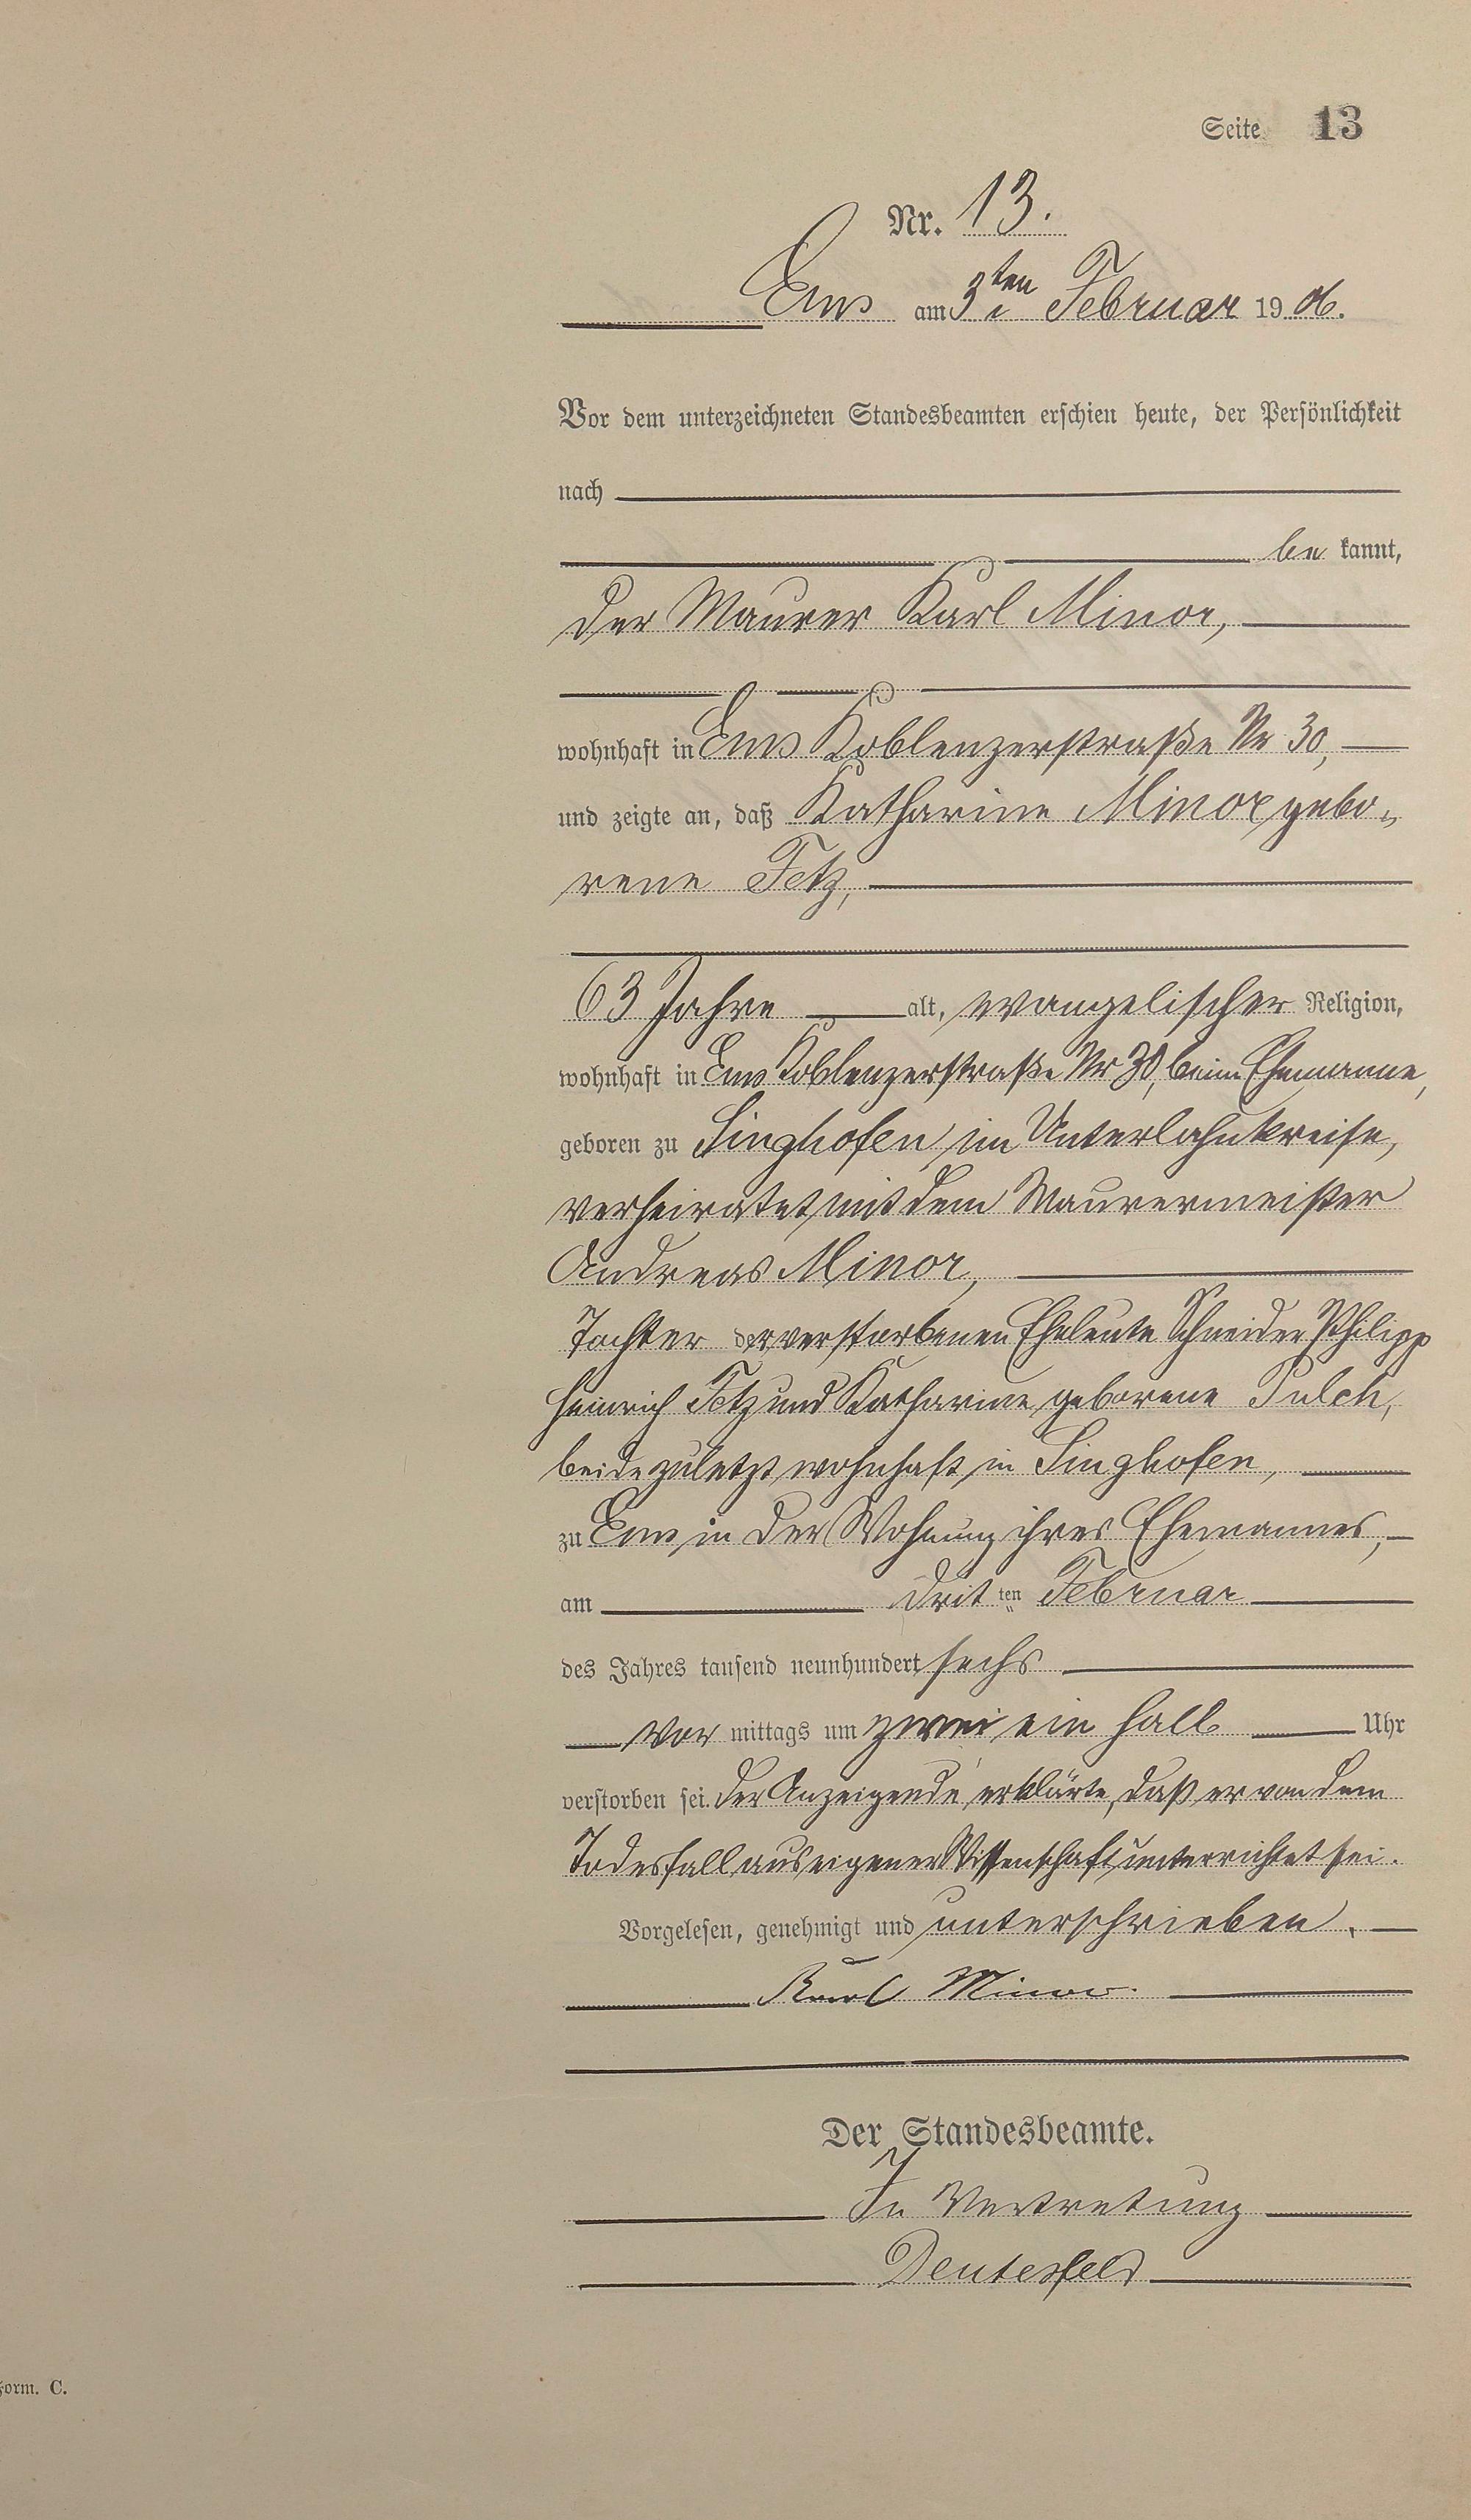 Seite 13
Nr. 13.
Ems am 3ten Februar 1906.
Vor dem unterzeichneten Standesbeamten erschien heute, der Persönlichkeit
nach
be kannt,
der Maurer Karl Minor,
wohnhaft in Ems Koblenzerstraße Nr 30,
und zeigte an, daß Katharine Minor gebo-
rene Fetz,
63 Jahre alt, evangelischer Religion,
wohnhaft in Ems Koblenzerstraße Nr 30, beim Ehemanne,
geboren zu Singhofen im Unterlahnkreise,
verheiratet mit dem Maurermeister
Andreas Minor,
Tochter der verstorbenen Eheleute Schneider Philipp
Heinrich Fetz und Katharine geborene Pulch,
beide zuletzt wohnhaft in Singhofen,
zu Ems in der Wohnung ihres Ehemannes,
am dritten Februar
des Jahres tausend neunhundert sechs
vor mittags um zwei ein halb Uhr
verstorben sei. Der Anzeigende erklärte, daß er von dem
Todesfall aus eigener Wissenschaft unterrichtet sei.
Vorgelesen, genehmigt und unterschrieben.
Karl Minor.
Der Standesbeamte.
In Vertretung
Form. C.